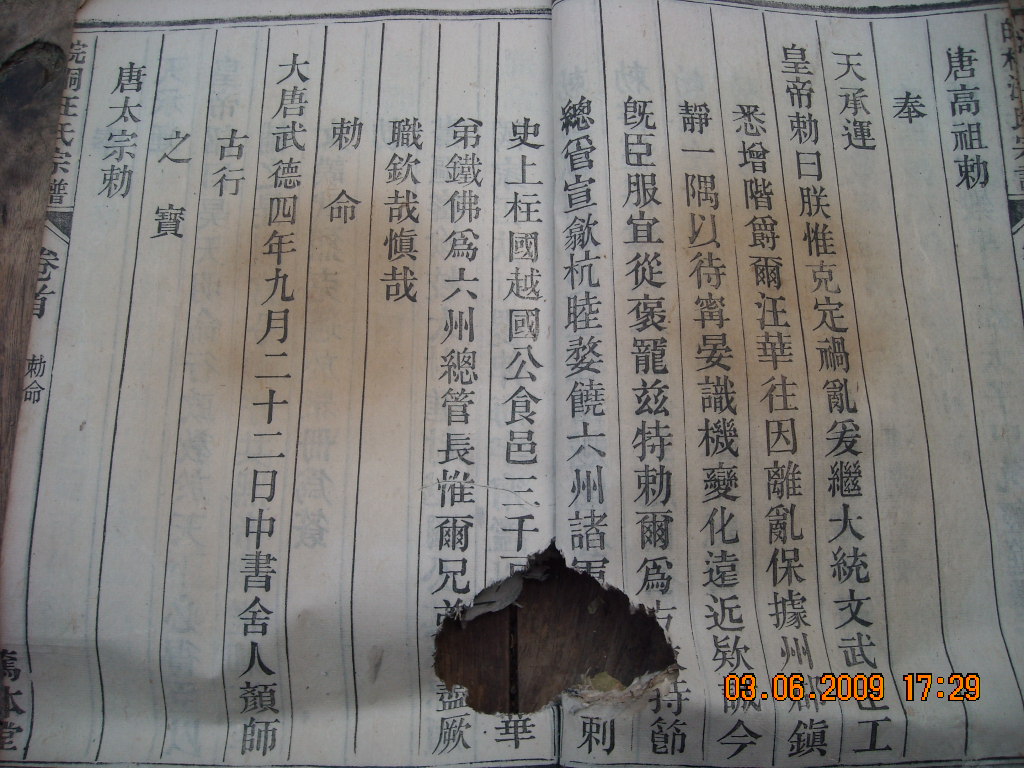 唐高祖勅
奉
天承運
皇帝勅曰朕惟克定禍亂爰繼大統文武臣工
悉增階爵爾汪華往因離亂保據州郡鎮
靜一隅以待甯晏識機變化遠近欵誠今
旣臣服宜從褒寵兹特勅爾爲 持節
總管宣歙杭睦婺饒六州諸軍 刺
史上柱國越國公食邑三千 華
弟鐵佛爲六州總管長惟爾兄 益厥
職欽哉愼哉
勅命
大唐武德四年九月二十二日中書舍人顏師
古行
之寶
唐太宗勅
汪氏宗譜
卷首
勅命
03.06.2009 17:29